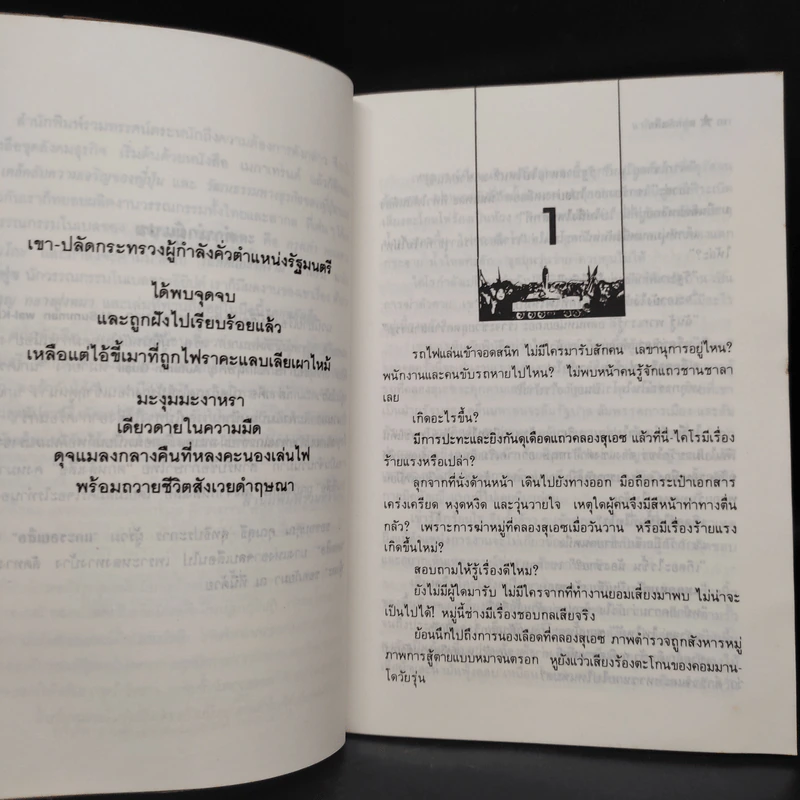 เขา-ปลัดกระทรวงผู้กำลังคั่วตำแหน่งรัฐมนตรี
ได้พบจุดจบ
และถูกฝังไปเรียบร้อยแล้ว
เหลือแต่ไอ้ขี้เมาที่ถูกไฟราคะแลบเลียเผาไหม้
มะงุมมะงาหรา
เดียวดายในความมืด
ดุจแมลงกลางคืนที่หลงคะนองเล่นไฟ
พร้อมถวายชีวิตสังเวยดำฤษณา
1
รถไฟแล่นเข้าจอดสนิท ไม่มีใครมารับสักคน เลขานุการอยู่ไหน?
พนักงานและคนขับรถหายไปไหน? ไม่พบหน้าคนรู้จักแถวชานชาลา
เลย
เกิดอะไรขึ้น?
มีการปะทะและยิงกันดุเดือดแถวคลองสุเอซ แล้วที่นี่-ไคโรมีเรื่อง
ร้ายแรงหรือเปล่า?
ลุกจากที่นั่งด้านหน้า เดินไปยังทางออก มือถือกระเป๋าเอกสาร
เคร่งเครียด หงุดหงิด และวุ่นวายใจ เหตุใดผู้คนจึงมีสีหน้าท่าทางตื่น
กลัว? เพราะการฆ่าหมู่ที่คลองสุเอซเมื่อวันวาน หรือมีเรื่องร้ายแรง
เกิดขึ้นใหม่?
สอบถามให้รู้เรื่องดีไหม?
ยังไม่มีผู้ใดมารับ ไม่มีใครจากที่ทำงานยอมเสี่ยงมาพบ ไม่น่าจะ
เป็นไปได้! หมู่นี้ช่างมีเรื่องชอบกลเสียจริง
ย้อนนึกไปถึงการนองเลือดที่คลองสุเอซ ภาพตำรวจถูกสังหารหมู่
ภาพการสู้ตายแบบหมาจนตรอก หูยังแว่วเสียงร้องตะโกนของคอมมาน-
โดวัยรุ่น